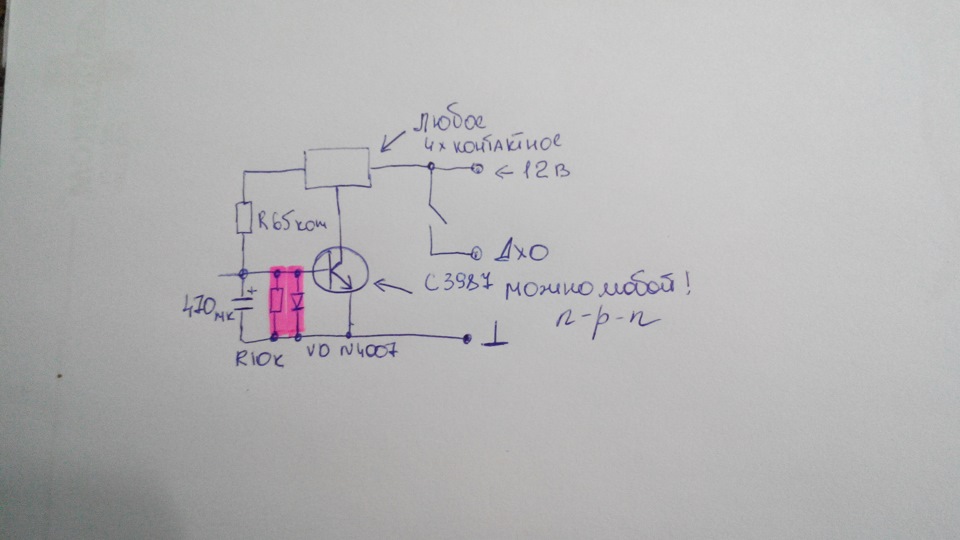 Любое
4х контактное
← 12В
R65ком
ДХО
С3987 можно любой!
n-p-n
+
470мк
R10к
VD N4007